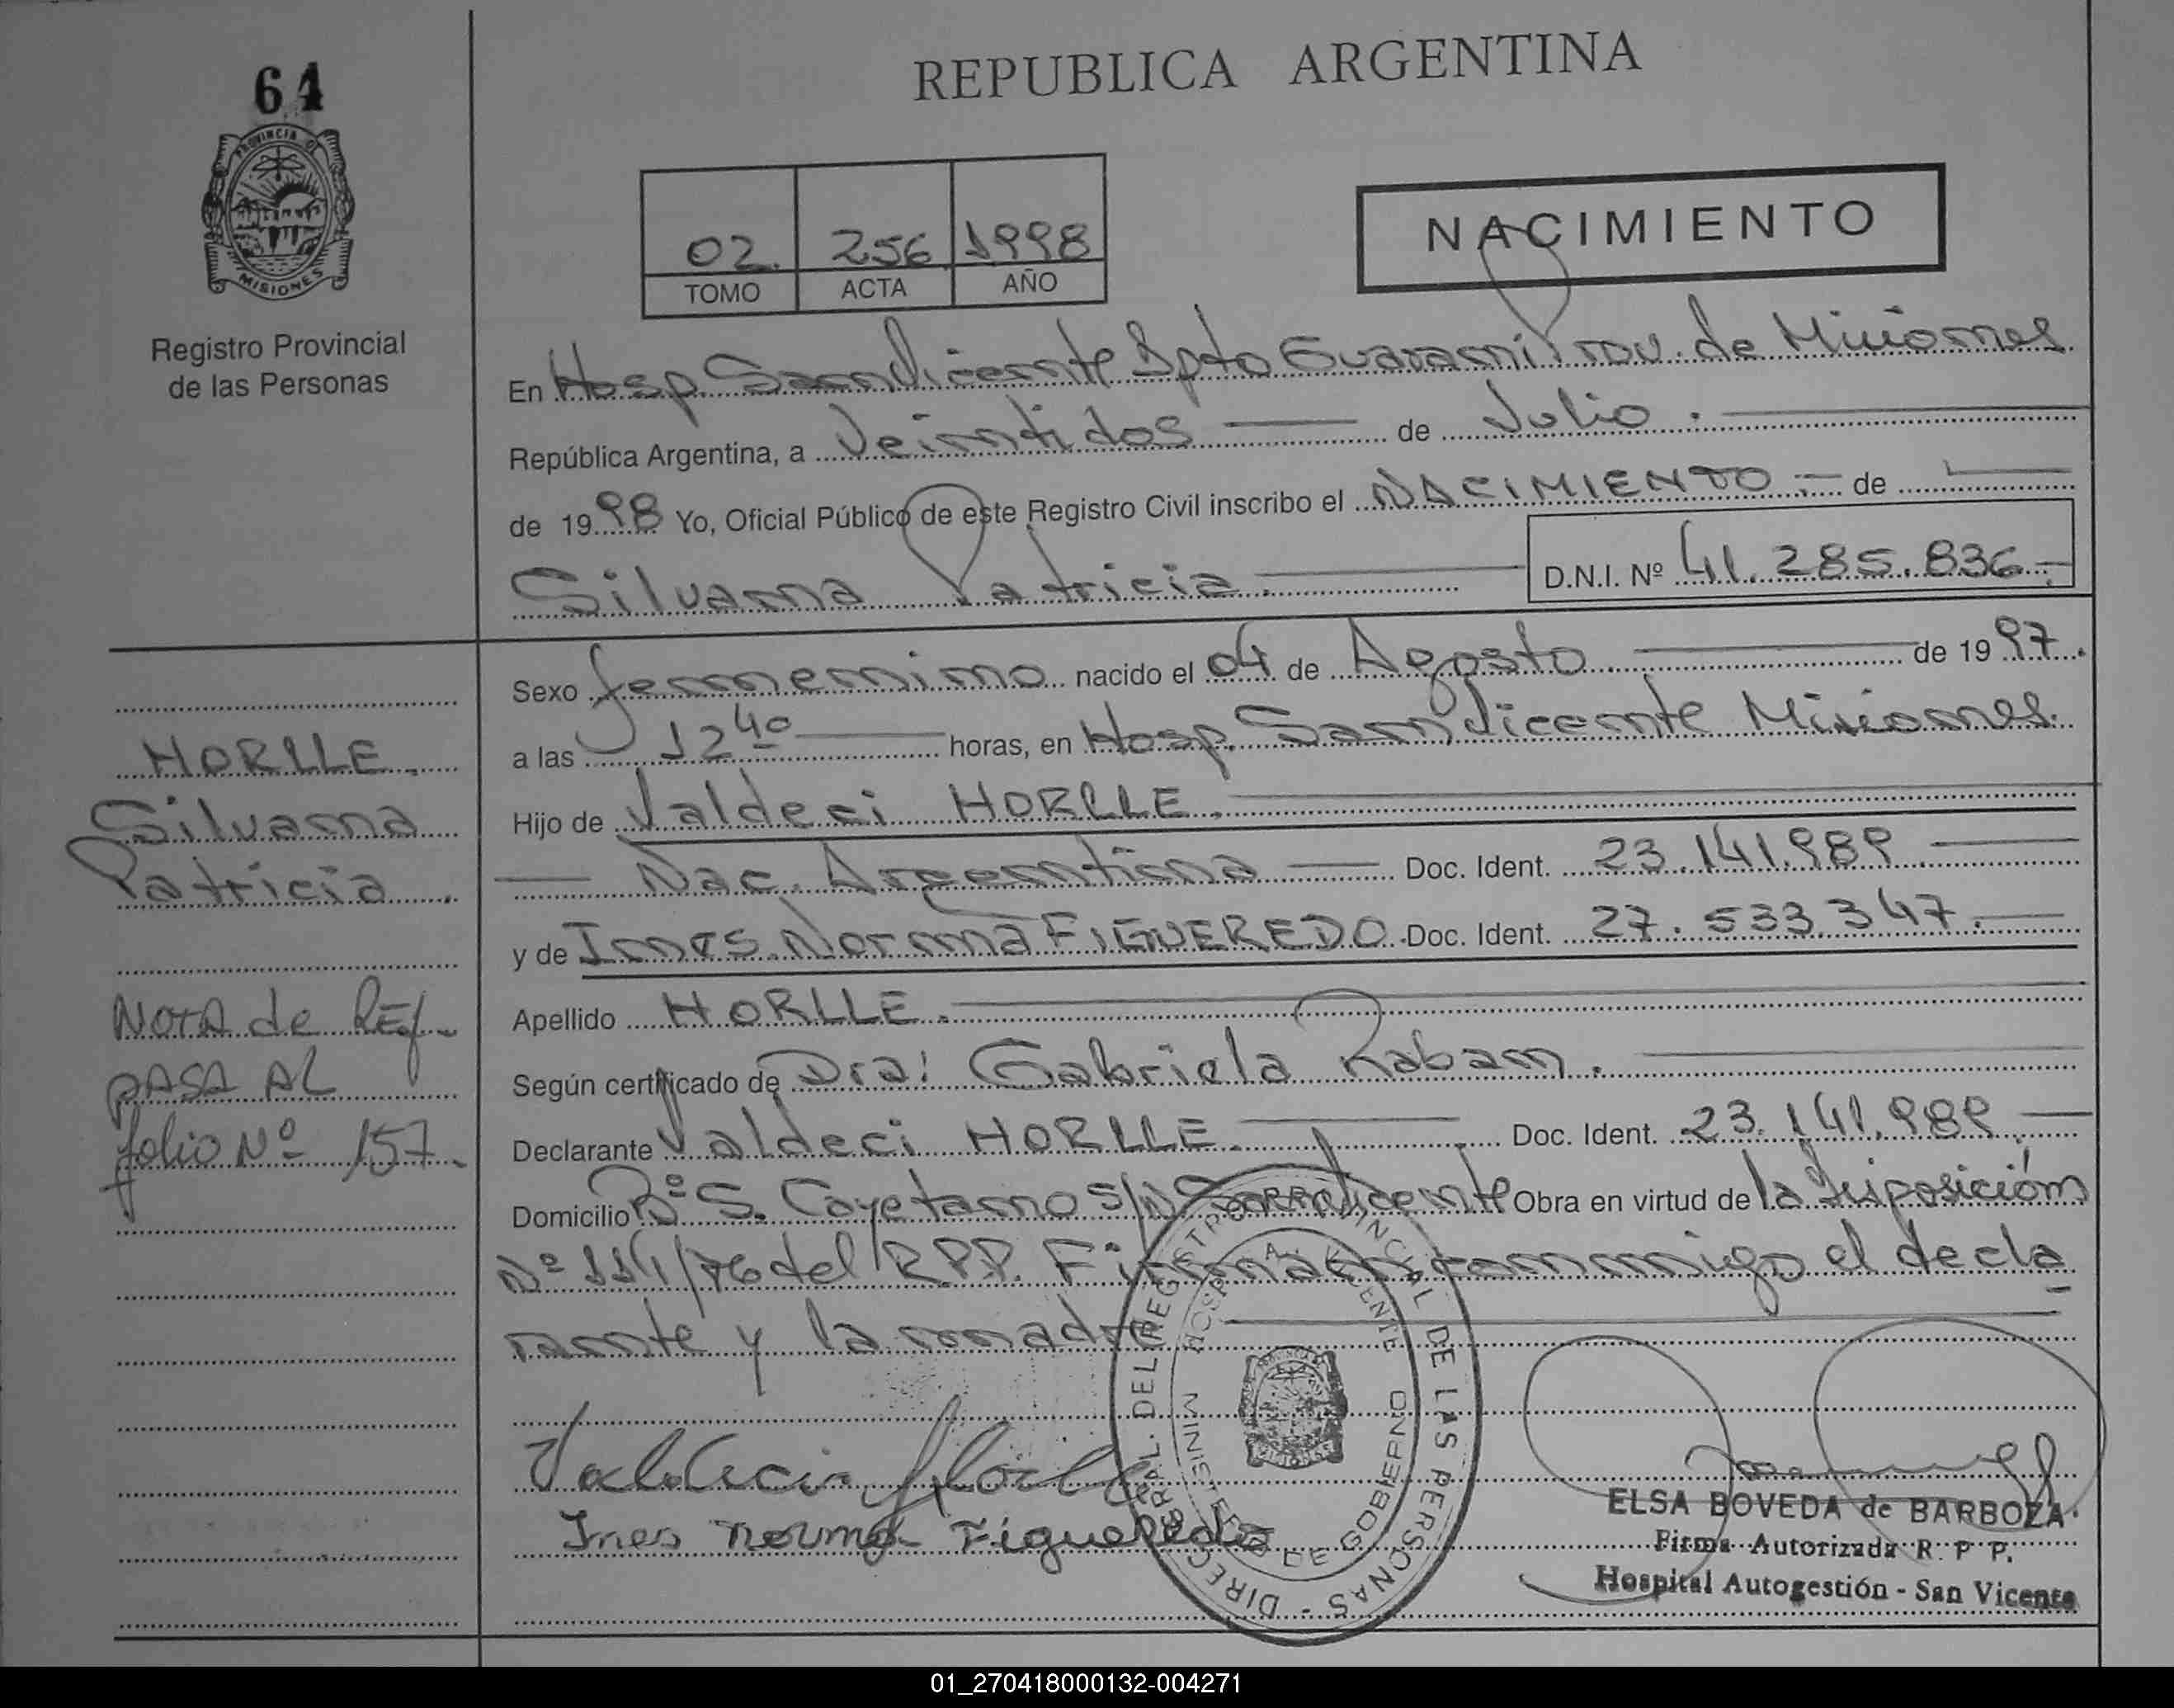 64
REPUBLICA ARGENTINA
PROVINCIA DE MISIONES
Registro Provincial
de las Personas
02. 256 1998
TOMO ACTA AÑO
NACIMIENTO
En Hosp. San Vicente Dpto Guarani Prov. de Misiones
República Argentina, a Veintidos de Julio.
de 1998 Yo, Oficial Público de este Registro Civil inscribo el NACIMIENTO.- de
Silvana Patricia. D.N.I. Nº 41.285.836.-
Sexo femenino nacido el 04 de Agosto de 1997.
a las 12 40 horas, en Hosp. San Vicente Misiones.
Hijo de Valdeci HORLLE.
Nac. Argentina Doc. Ident. 23.141.989
y de Ines Norma FIGUEREDO Doc. Ident. 27.533.347.
Apellido HORLLE.
Según certificado de Dra: Gabriela Raban.
Declarante Valdeci HORLLE. Doc. Ident. 23.141.989
Domicilio Bº S. Cayetano S/N San Vicente Obra en virtud de la disposición
Nº 114/76 del R.P.P. Firman conmigo el decla
rante y la madre
HORLLE.
Silvana
Patricia.
NOTA de REf.
PASA AL
folio Nº 157.
Ines Norma Figueredo
DIREC. GRAL. DEL REGISTRO PROVINCIAL DE LAS PERSONAS -
MINISTERIO DE GOBIERNO
ELSA BOVEDA de BARBOZA
Firma Autorizada R. P. P.
Hospital Autogestión - San Vicente
01_270418000132-004271